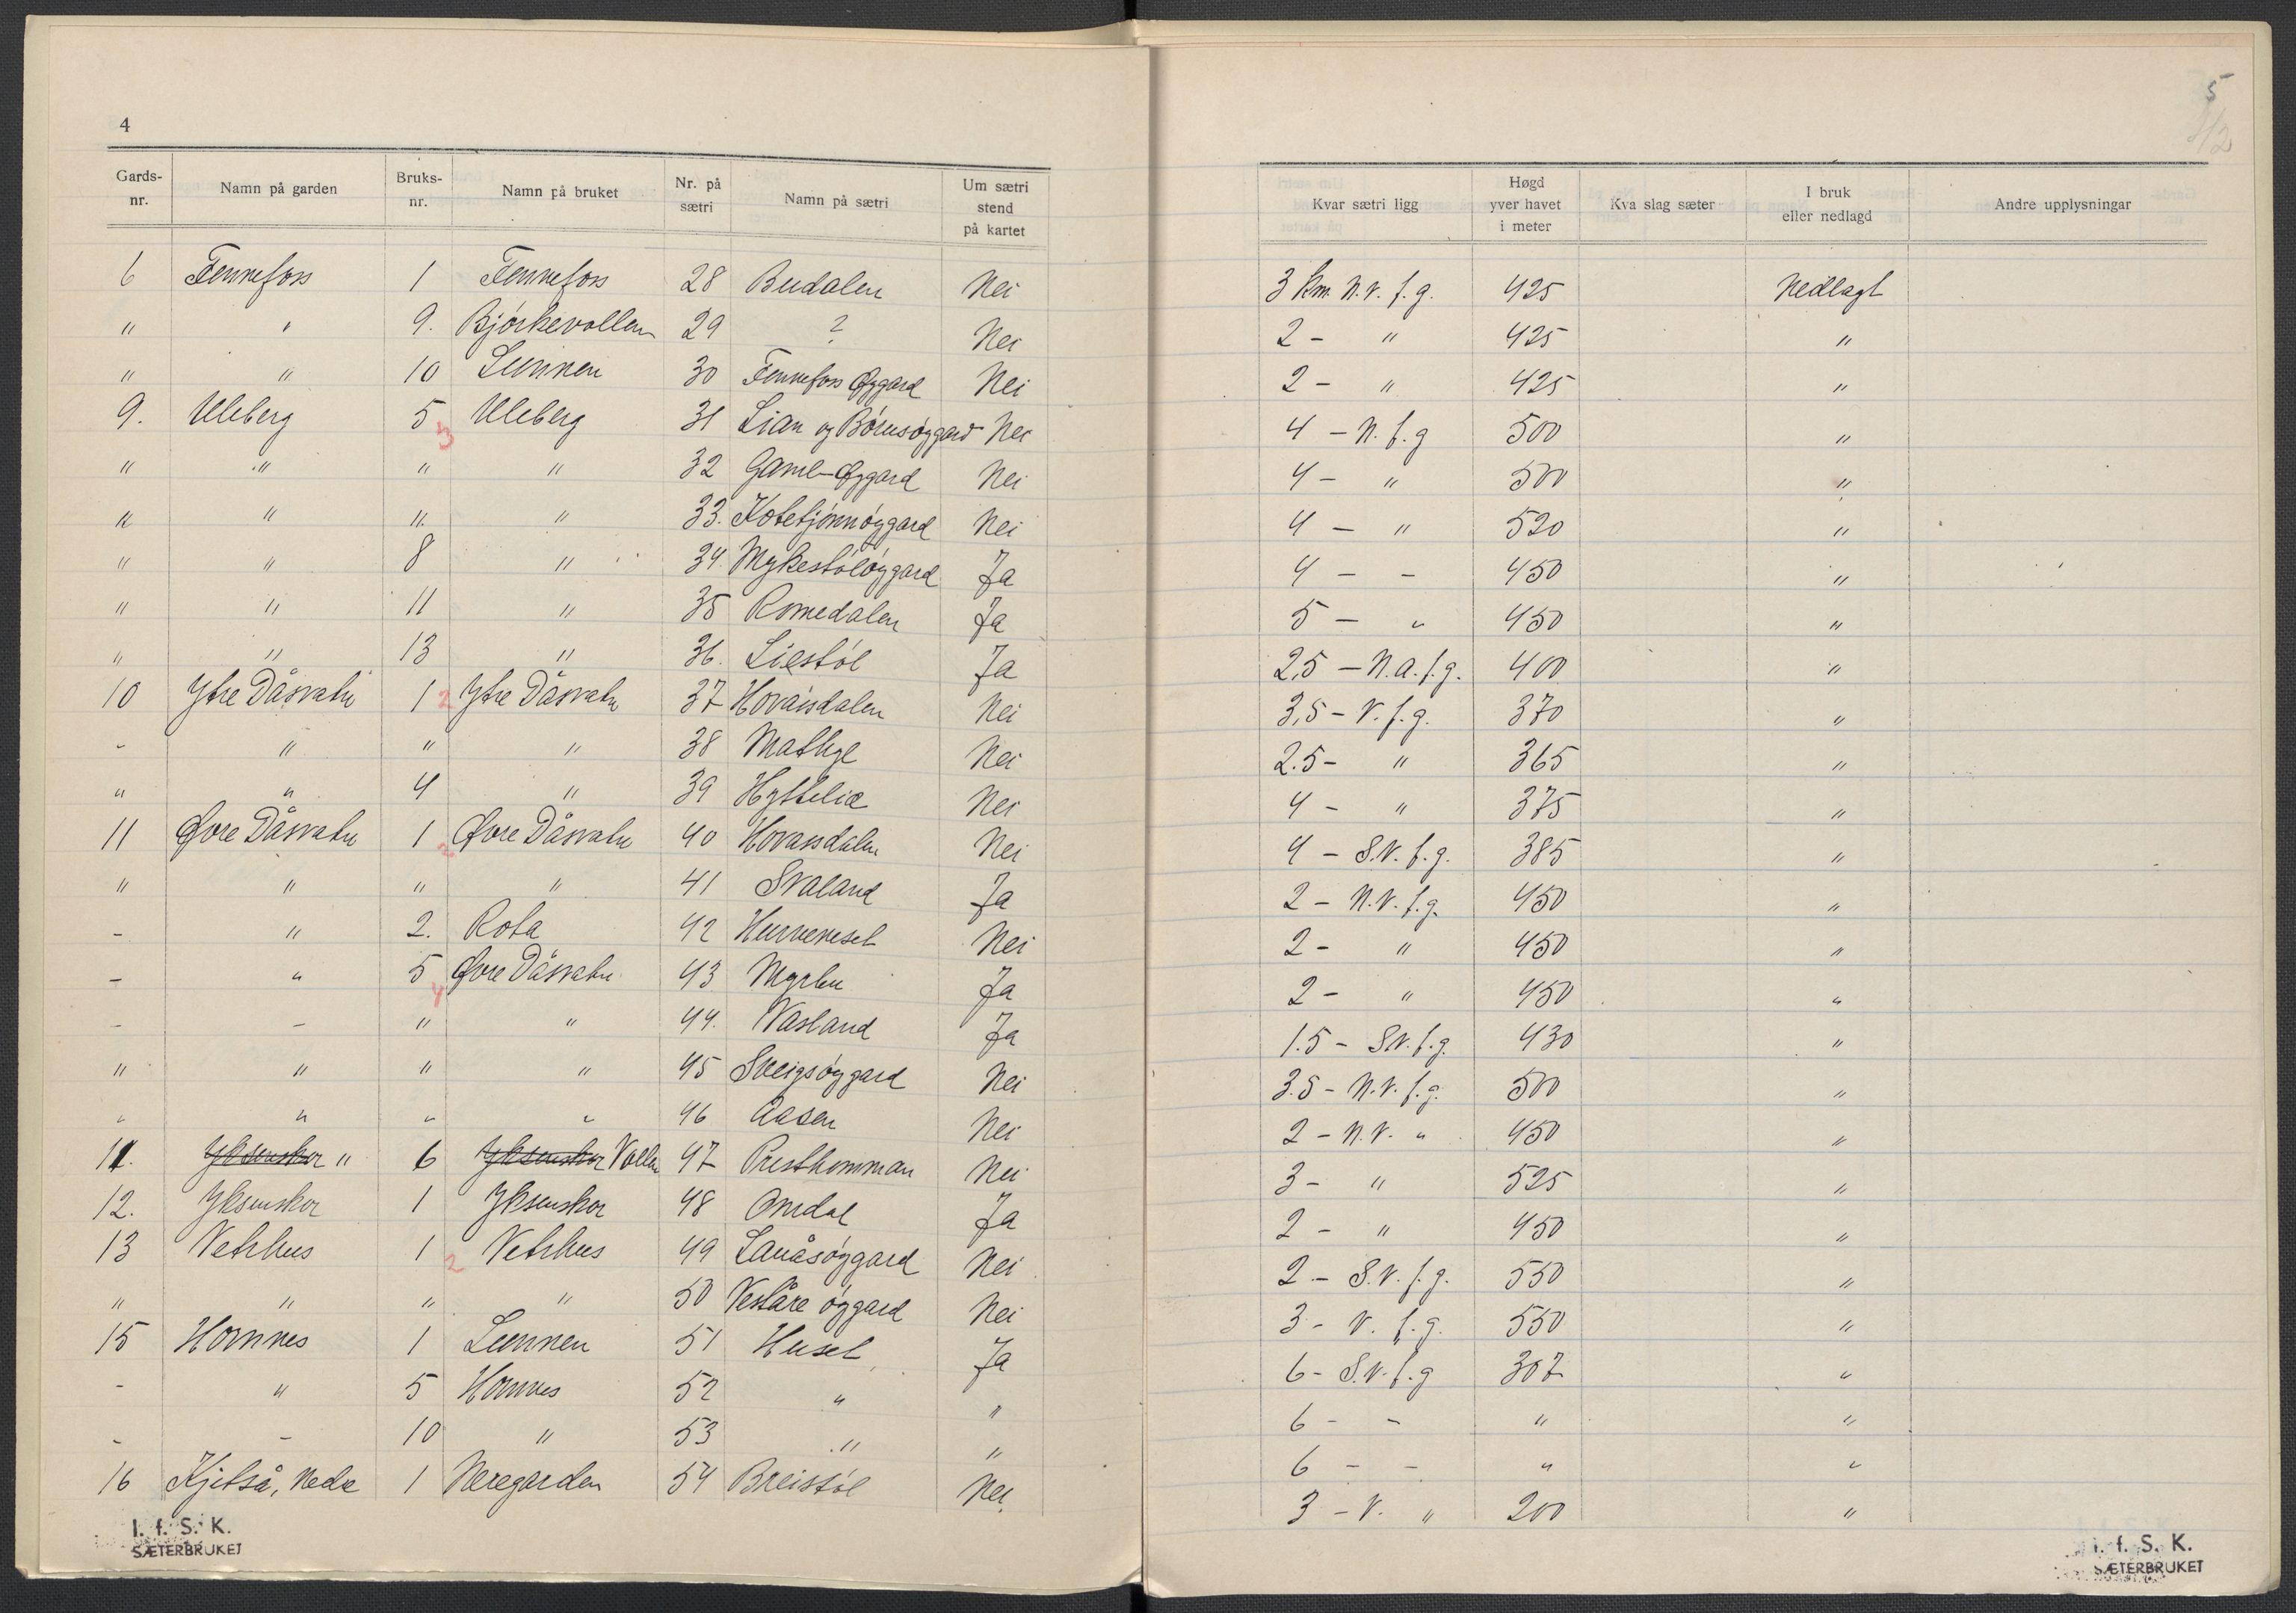 4
5
Gards-nr. Namn på garden Bruks-nr. Namn på bruket Nr. på sætri Namn på sætri Um sætri stend på kartet Kvar sætri ligg Høgd yver havet i meter Kva slag sæter I bruk eller nedlagd Andre upplysningar
6 Fennefoss 1 Fennefoss 28 Budalen Nei 3 km. N.V. f.g. 425 Nedlagt
" " 9. Bjørkevollen 29 ? Nei 2 - " 425 "
" " 10 Lunnen 30 Fennefoss Øygard Nei 2 - " 425 "
9. Uleberg 5 3 Uleberg 31 Lian og Bómsøygard Nei 4 - N. f. g 500 "
" " " " 32 Gaml-Øygard Nei 4 - " 500 "
" " " " 33. Kotetjønnøygard Nei 4 - " 520 "
" " 8 " 34. Mykestóløygard Ja 4 - - 450 "
" " 11 " 35 Romedalen Ja 5 - " 450 "
" " 13 " 36. Liestøl Ja 2,5 - N.A. f.g. 400 "
10 Ytre Dåsvatn 1 2 Ytre Dåsvatn 37 Hovassdalen Nei 3,5 - V. f.g. 370 "
- " " " 38 Mathyl Nei 2.5 - " 365 "
" " 4 " 39 Hyttelia Nei 4 - " 375 "
11 Øvre Dåsvatn 1 2 Øvre Dåsvatn 40 Hovassdalen Nei 4 - S.V. f.g. 385 "
" " " " 41 Svaland Ja 2 - N.V. f.g. 450 "
- " 2. Rota 42 Hurvenesel Nei 2 - " 450 "
- " 5 4 Øvre Dåsvatn 43 Myrlen Ja 2 - " 450 "
- - " " 44. Vasland Ja 1.5 - S.V. f.g. 430 "
" " " " 45 Sveigsøygard Nei 3.5 - N.V. f.g. 500 "
" " " " 46 Aasen Nei 2 - N.V. " 450 "
11. Yksenskor " 6 Yksenskor Vollen 47 Presthomman Nei 3 - " 525 "
12. Yksenskor 1 Yksenskor 48 Omdal Ja 2 - " 450 "
13 Vetrhus 1 2 Vetrhus 49 Lauåsøygard Nei 2 - S.V. f.g. 550 "
" " " " 50 Veståre øygard Nei 3 - V. f.g. 550 "
15 Hornnes 1 Lunnen 51 Husel Ja 6 - S.V. f.g 307 "
- " 5 Hornnes 52 " " 6 - - " "
- - 10 " 53 " " 6 - - " "
16 Kjetså, Nedre 1 Neregarden 54 Breistøl Nei 3 - V. " 200 "
I. f. S. K.
SÆTERBRUKET
I. f. S. K.
SÆTERBRUKET